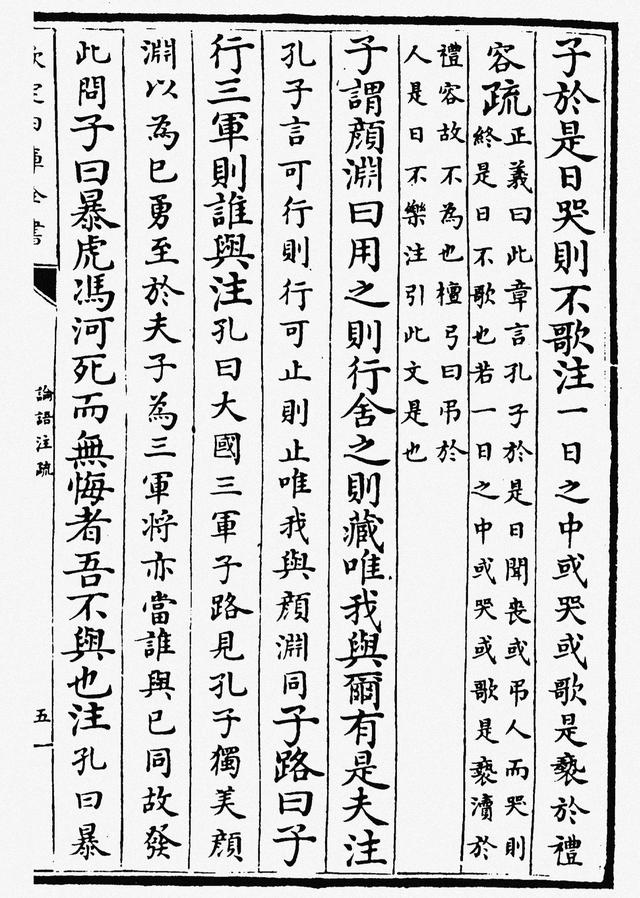 子於是日哭則不歌注一日之中或哭或歌是褻於禮
容疏正義曰此章言孔子於是日聞喪或吊人而哭則
終是日不歌也若一日之中或哭或歌是褻瀆於
禮容故不為也檀弓曰吊於
人是日不樂注引此文是也
子謂顏淵曰用之則行舍之則藏唯我與爾有是夫注
孔子言可行則行可止則止唯我與顏淵同子路曰子
行三軍則誰與注孔曰大國三軍子路見孔子獨美顏
淵以為已勇至於夫子為三軍將亦當誰與已同故發
此問子曰暴虎馮河死而無悔者吾不與也注孔曰暴
欽定四庫全書
論語注疏
五一